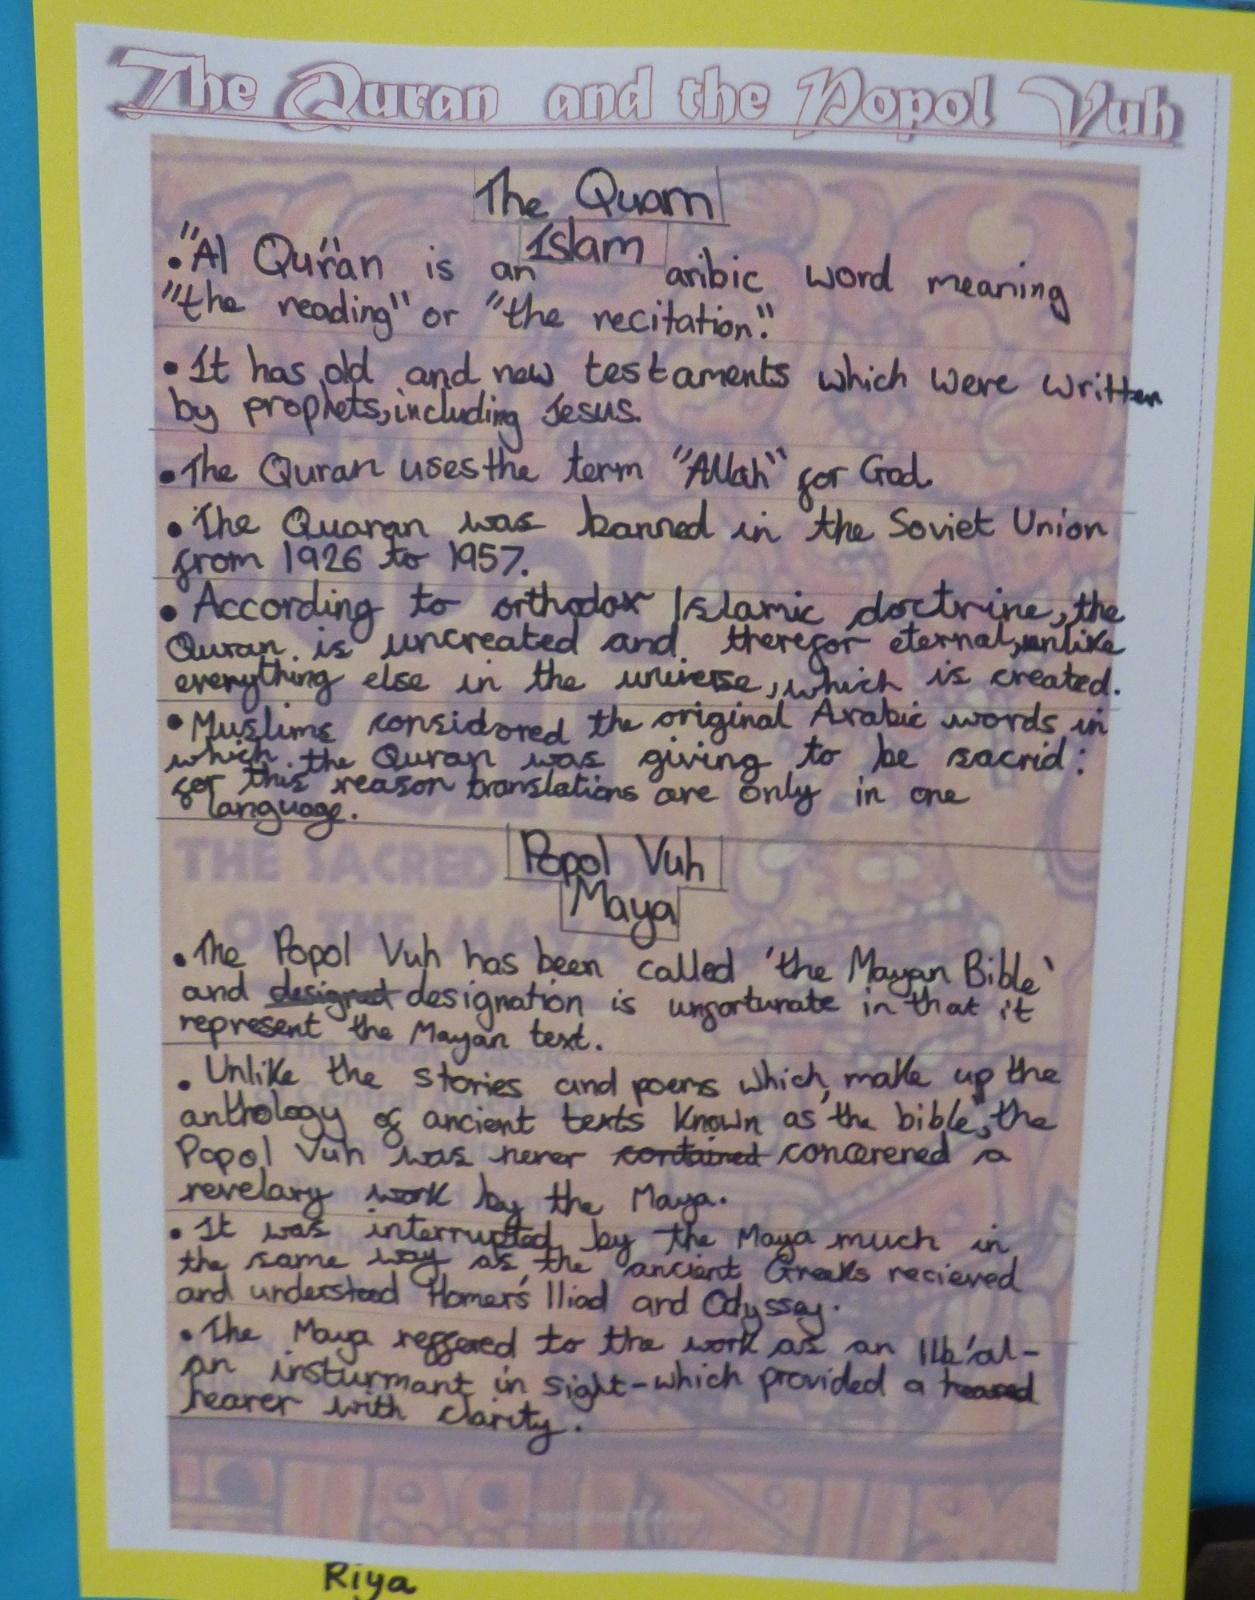 The Quran and the Popol Vuh
The Quam
Islam
• "Al Qur'an is an aribic word meaning
"the reading" or "the recitation".
• It has old and new testaments which were written
by prophets, including Jesus.
• The Quran uses the term "Allah" for God.
• The Quaran was banned in the Soviet Union
from 1926 to 1957.
• According to orthodox Islamic doctrine, the
Quran is uncreated and therefor eternal, unlike
everything else in the universe, which is created.
• Muslims considored the original Arabic words in
which the Quran was giving to be sacrid:
for this reason translations are only in one
language.
THE SACRED
OF THE MAYA
Popol Vuh
Maya
• The Popol Vuh has been called 'the Mayan Bible'
and designed designation is unfortunate in that it
represent the Mayan text.
• Unlike the stories and poems which make up the
anthology of ancient texts known as 'the bible', the
Popol Vuh was never contained concerened a
revelary work by the Maya.
• It was interrupted by the Maya much in
the same way as the ancient Greeks recieved
and understood Homer's Iliad and Odyssey.
• The Maya reffered to the work as an Ilb'al-
an insturmant in sight-which provided a
hearer with clarity.
Riya